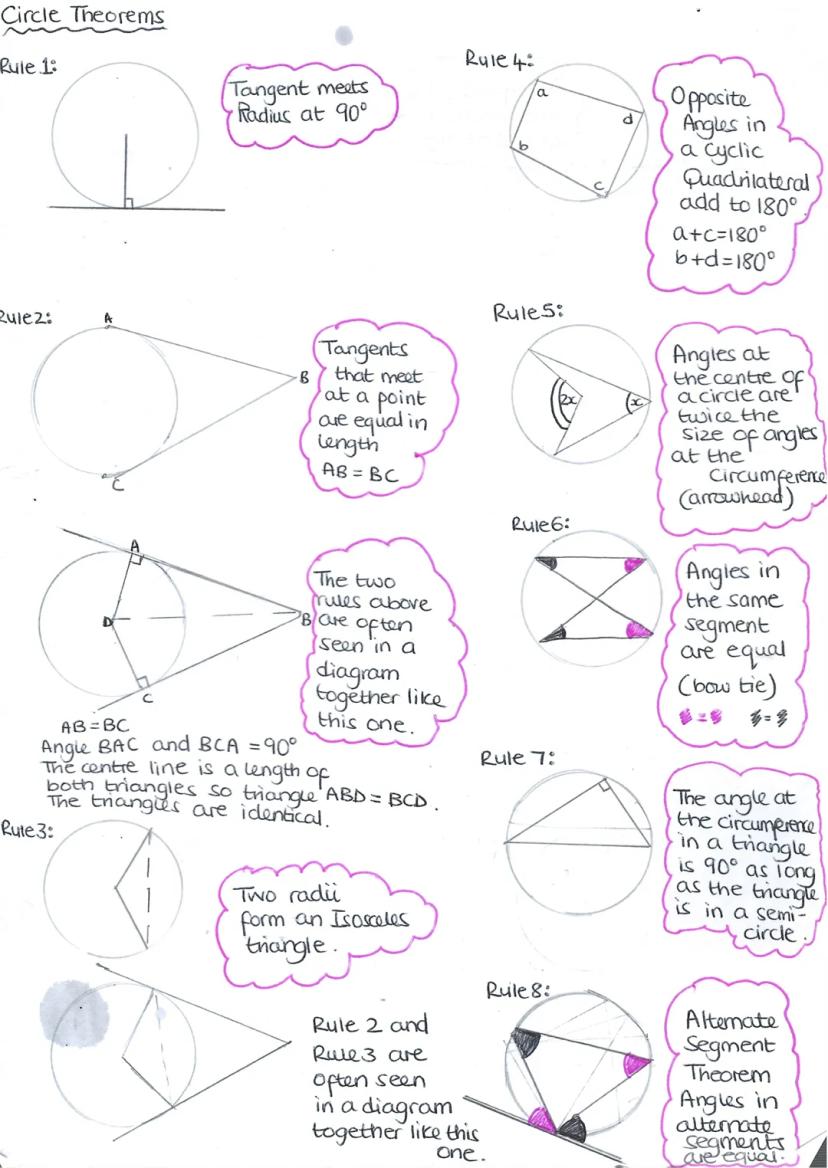 Circle Theorems
Rule 1:
Tangent meets
Radius at 90°
Rule 2:
A
B
C
Tangents
that meet
at a point
are equal in
length
AB = BC
A
D
B
C
The two
rules above
are often
seen in a
diagram
together like
this one.
AB = BC
Angle BAC and BCA = 90°
The centre line is a length of
both triangles so triangle ABD = BCD.
The triangles are identical.
Rule 3:
Two radii
form an Isosceles
triangle.
Rule 2 and
Rule 3 are
often seen
in a diagram
together like this
one.
Rule 4:
a
d
b
c
Opposite
Angles in
a cyclic
Quadrilateral
add to 180°
a+c=180°
b+d=180°
Rule 5:
2x
x
Angles at
the centre of
a circle are
twice the
size of angles
at the
Circumference
(arrowhead)
Rule 6:
Angles in
the same
segment
are equal
(bow tie)
= =
Rule 7:
The angle at
the circumference
in a triangle
is 90° as long
as the triangle
is in a semi-
circle.
Rule 8:
Alternate
Segment
Theorem
Angles in
alternate
segments
are equal.